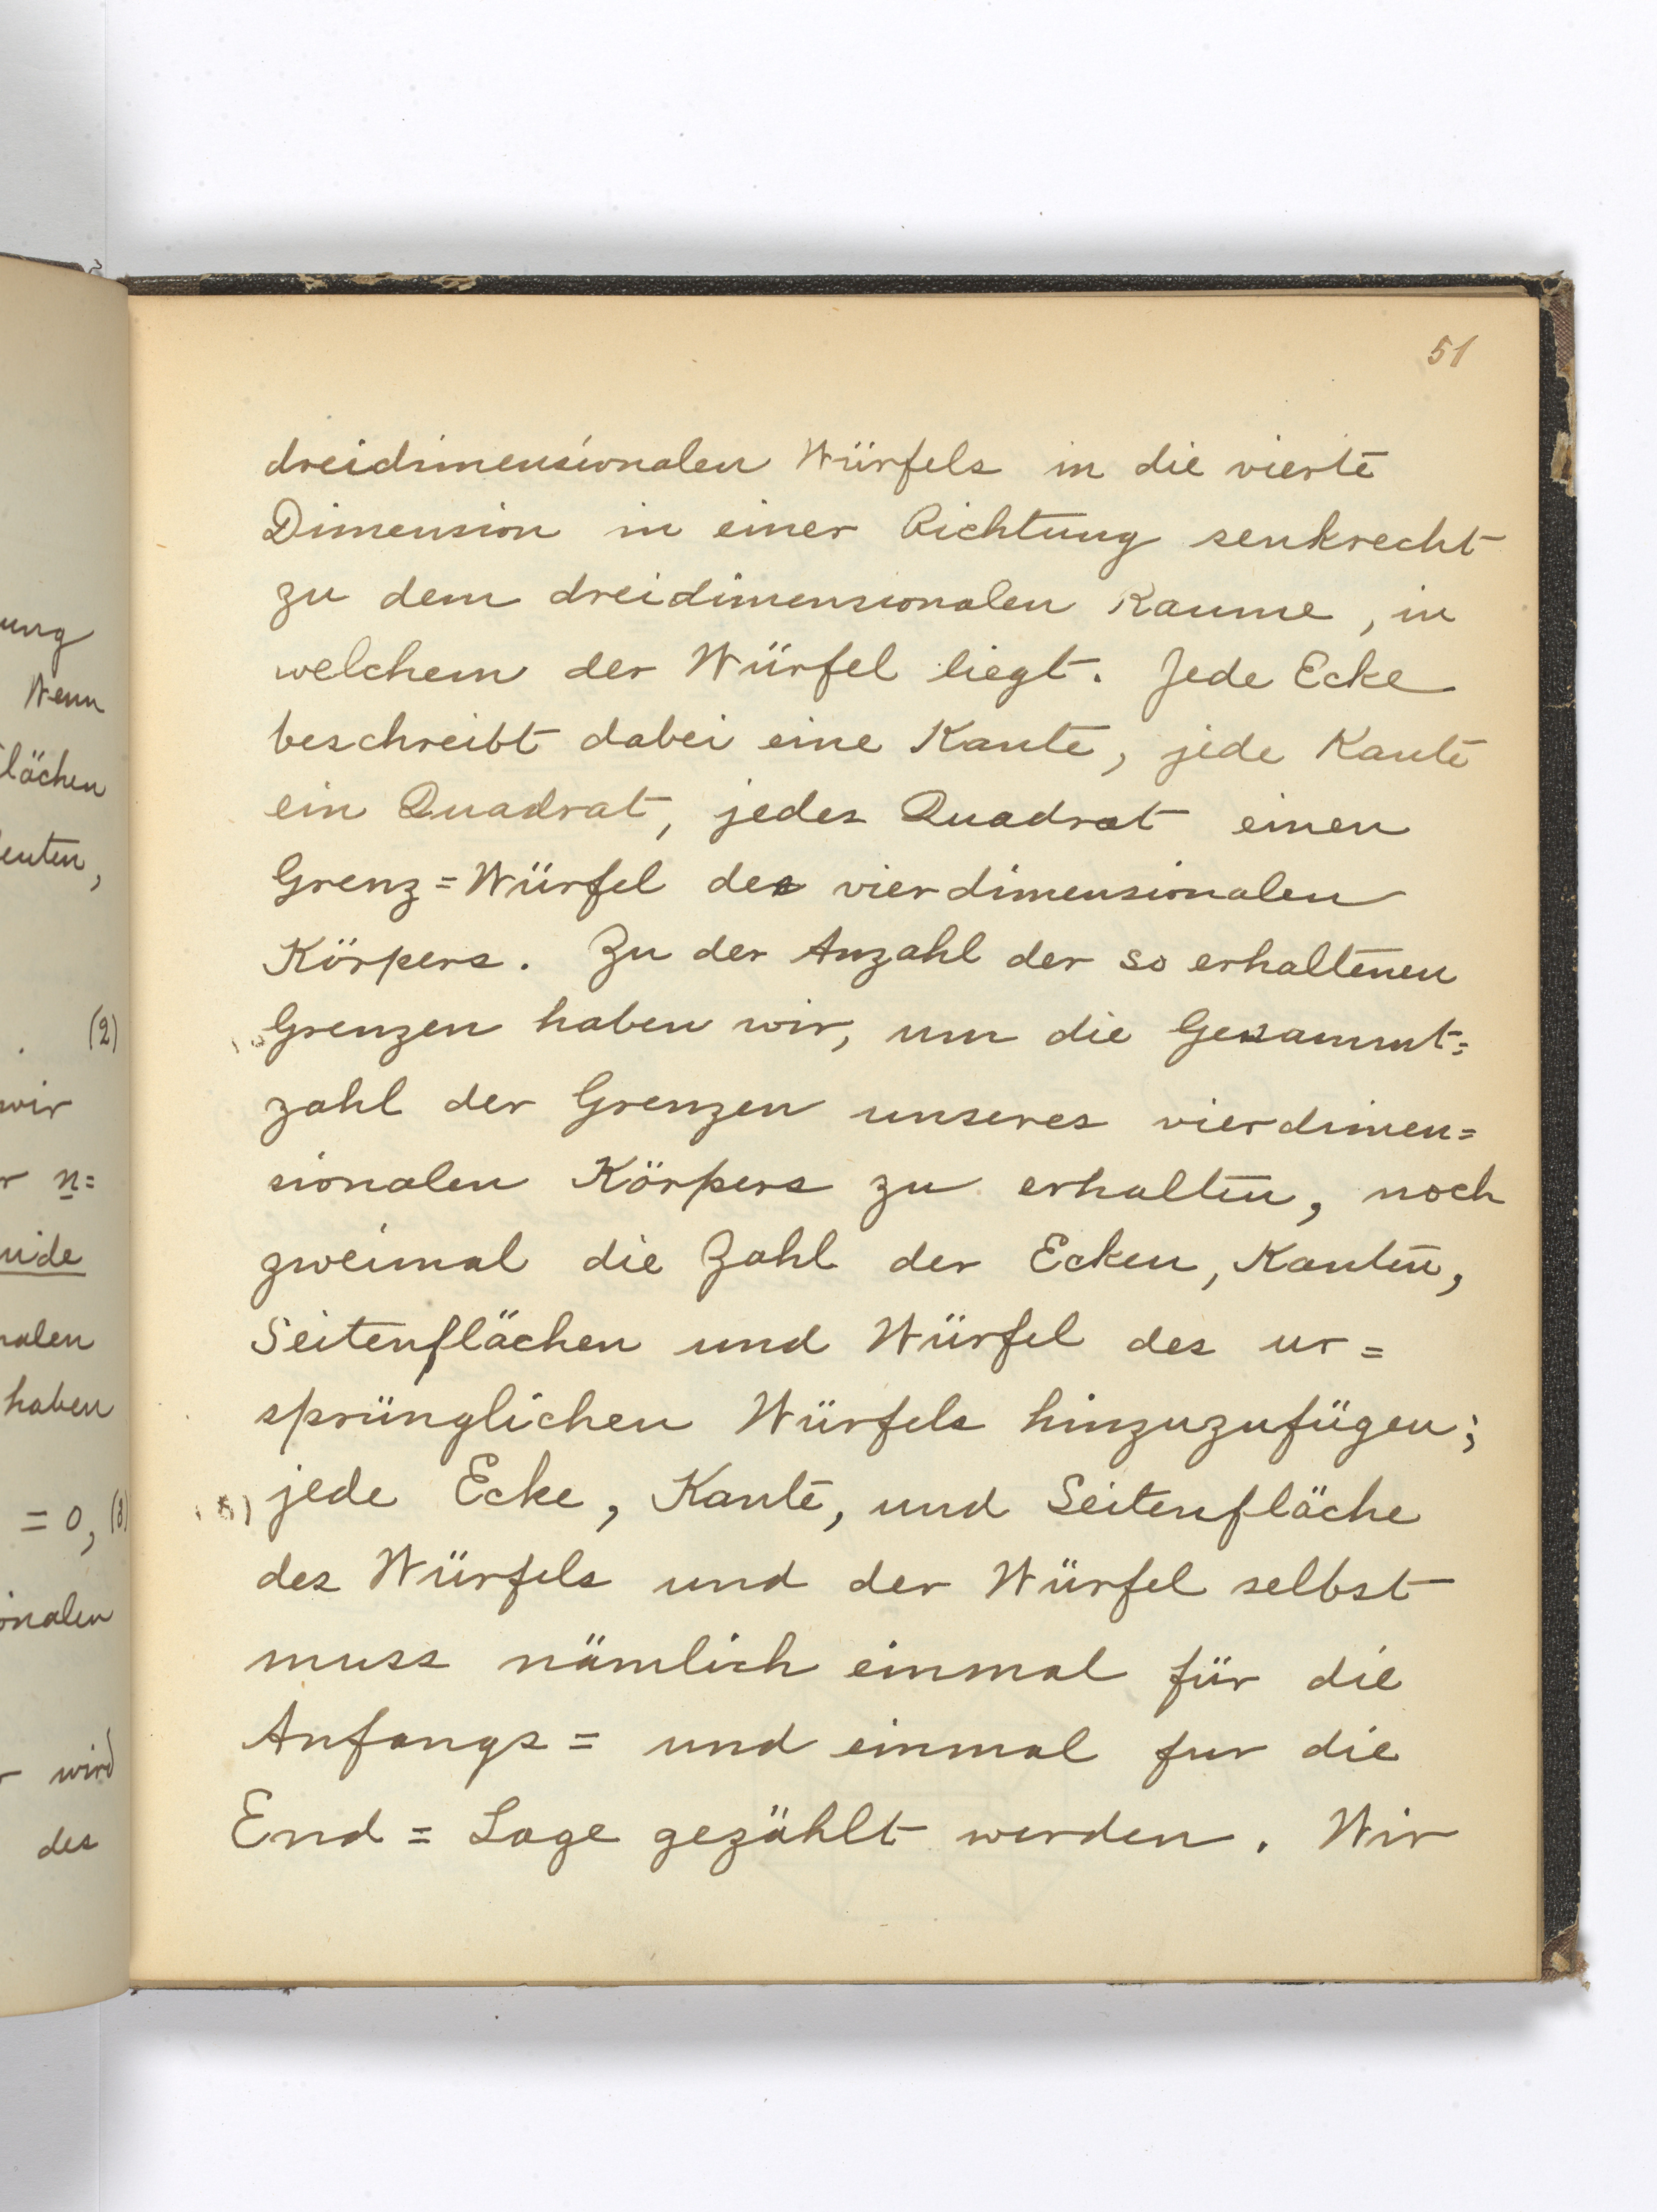 51
dreidimensionalen Würfels in die vierte
Dimension in einer Richtung senkrecht
zu dem dreidimensionalen Raume, in
welchem der Würfel liegt. Jede Ecke
beschreibt dabei eine Kante, jede Kante
ein Quadrat, jedes Quadrat einen
Grenz=Würfel des vierdimensionalen
Körpers. Zu der Anzahl der so erhaltenen
Grenzen haben wir, um die Gesammt=
zahl der Grenzen unseres vierdimen=
sionalen Körpers zu erhalten, noch
zweimal die Zahl der Ecken, Kanten,
Seitenflächen und Würfel des ur=
sprünglichen Würfels hinzuzufügen;
jede Ecke, Kante, und Seitenfläche
des Würfels und der Würfel selbst
muss nämlich einmal für die
Anfangs= und einmal fur die
End=Lage gezählt werden. Wir
ung
Wenn
lächen
enten,
(2)
wir
r n=
ide
nalen
haben
= 0, (3)
onalen
r wird
des